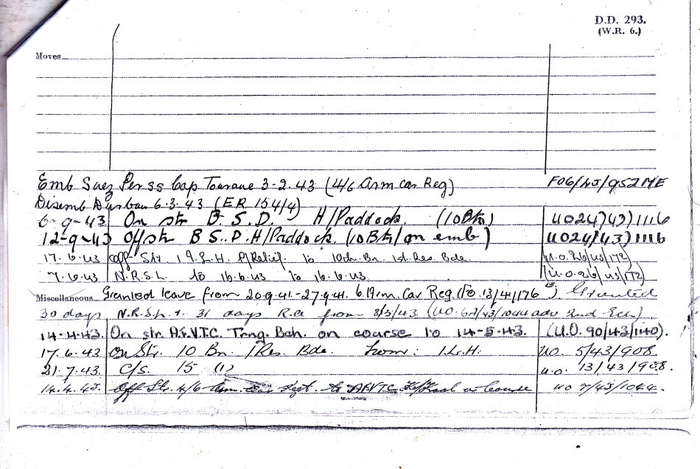 D.D. 293.
(W.R. 6.)
Moves
Emb Suez Per SS Cap Tourane 3-2-43 (4/6 Arm Car Reg) FO6/43/952 ME
Disemb Durban 6-3-43 (ER 154/4)
6-9-43 On str B.S.D. H/Paddock. (10 Btn) UO24(43)1116
12-9-43 Off str B S.P. H/Paddock. (10 Btn/on emb) UO24(43)1116
17.6.43 Off Str I.L.H. to 10th Bn 1st Res Bde
7.6.43 N.R.S.L. to 16.6.43
Miscellaneous Granted leave from 20-9-41-27-9-41. 6 Arm. Car Reg. (Po 13/41/176) Granted
30 days N.R.S.L. + 31 days R.a from 8/3/43
14-4-43. On str. A.F.V.T.C. Trng. Bth. on course to 14-5-43. (U.O. 90/43/1140).
17.6.43 On Str. 10 Bn. 1 Res. Bde. from: I.L.H. UO. 5/43/908.
21.7.43 C/S. 15 (1) U.O. 13/43/908.
14.4.43. Off Str. 4/6 UO 7/43/1044.